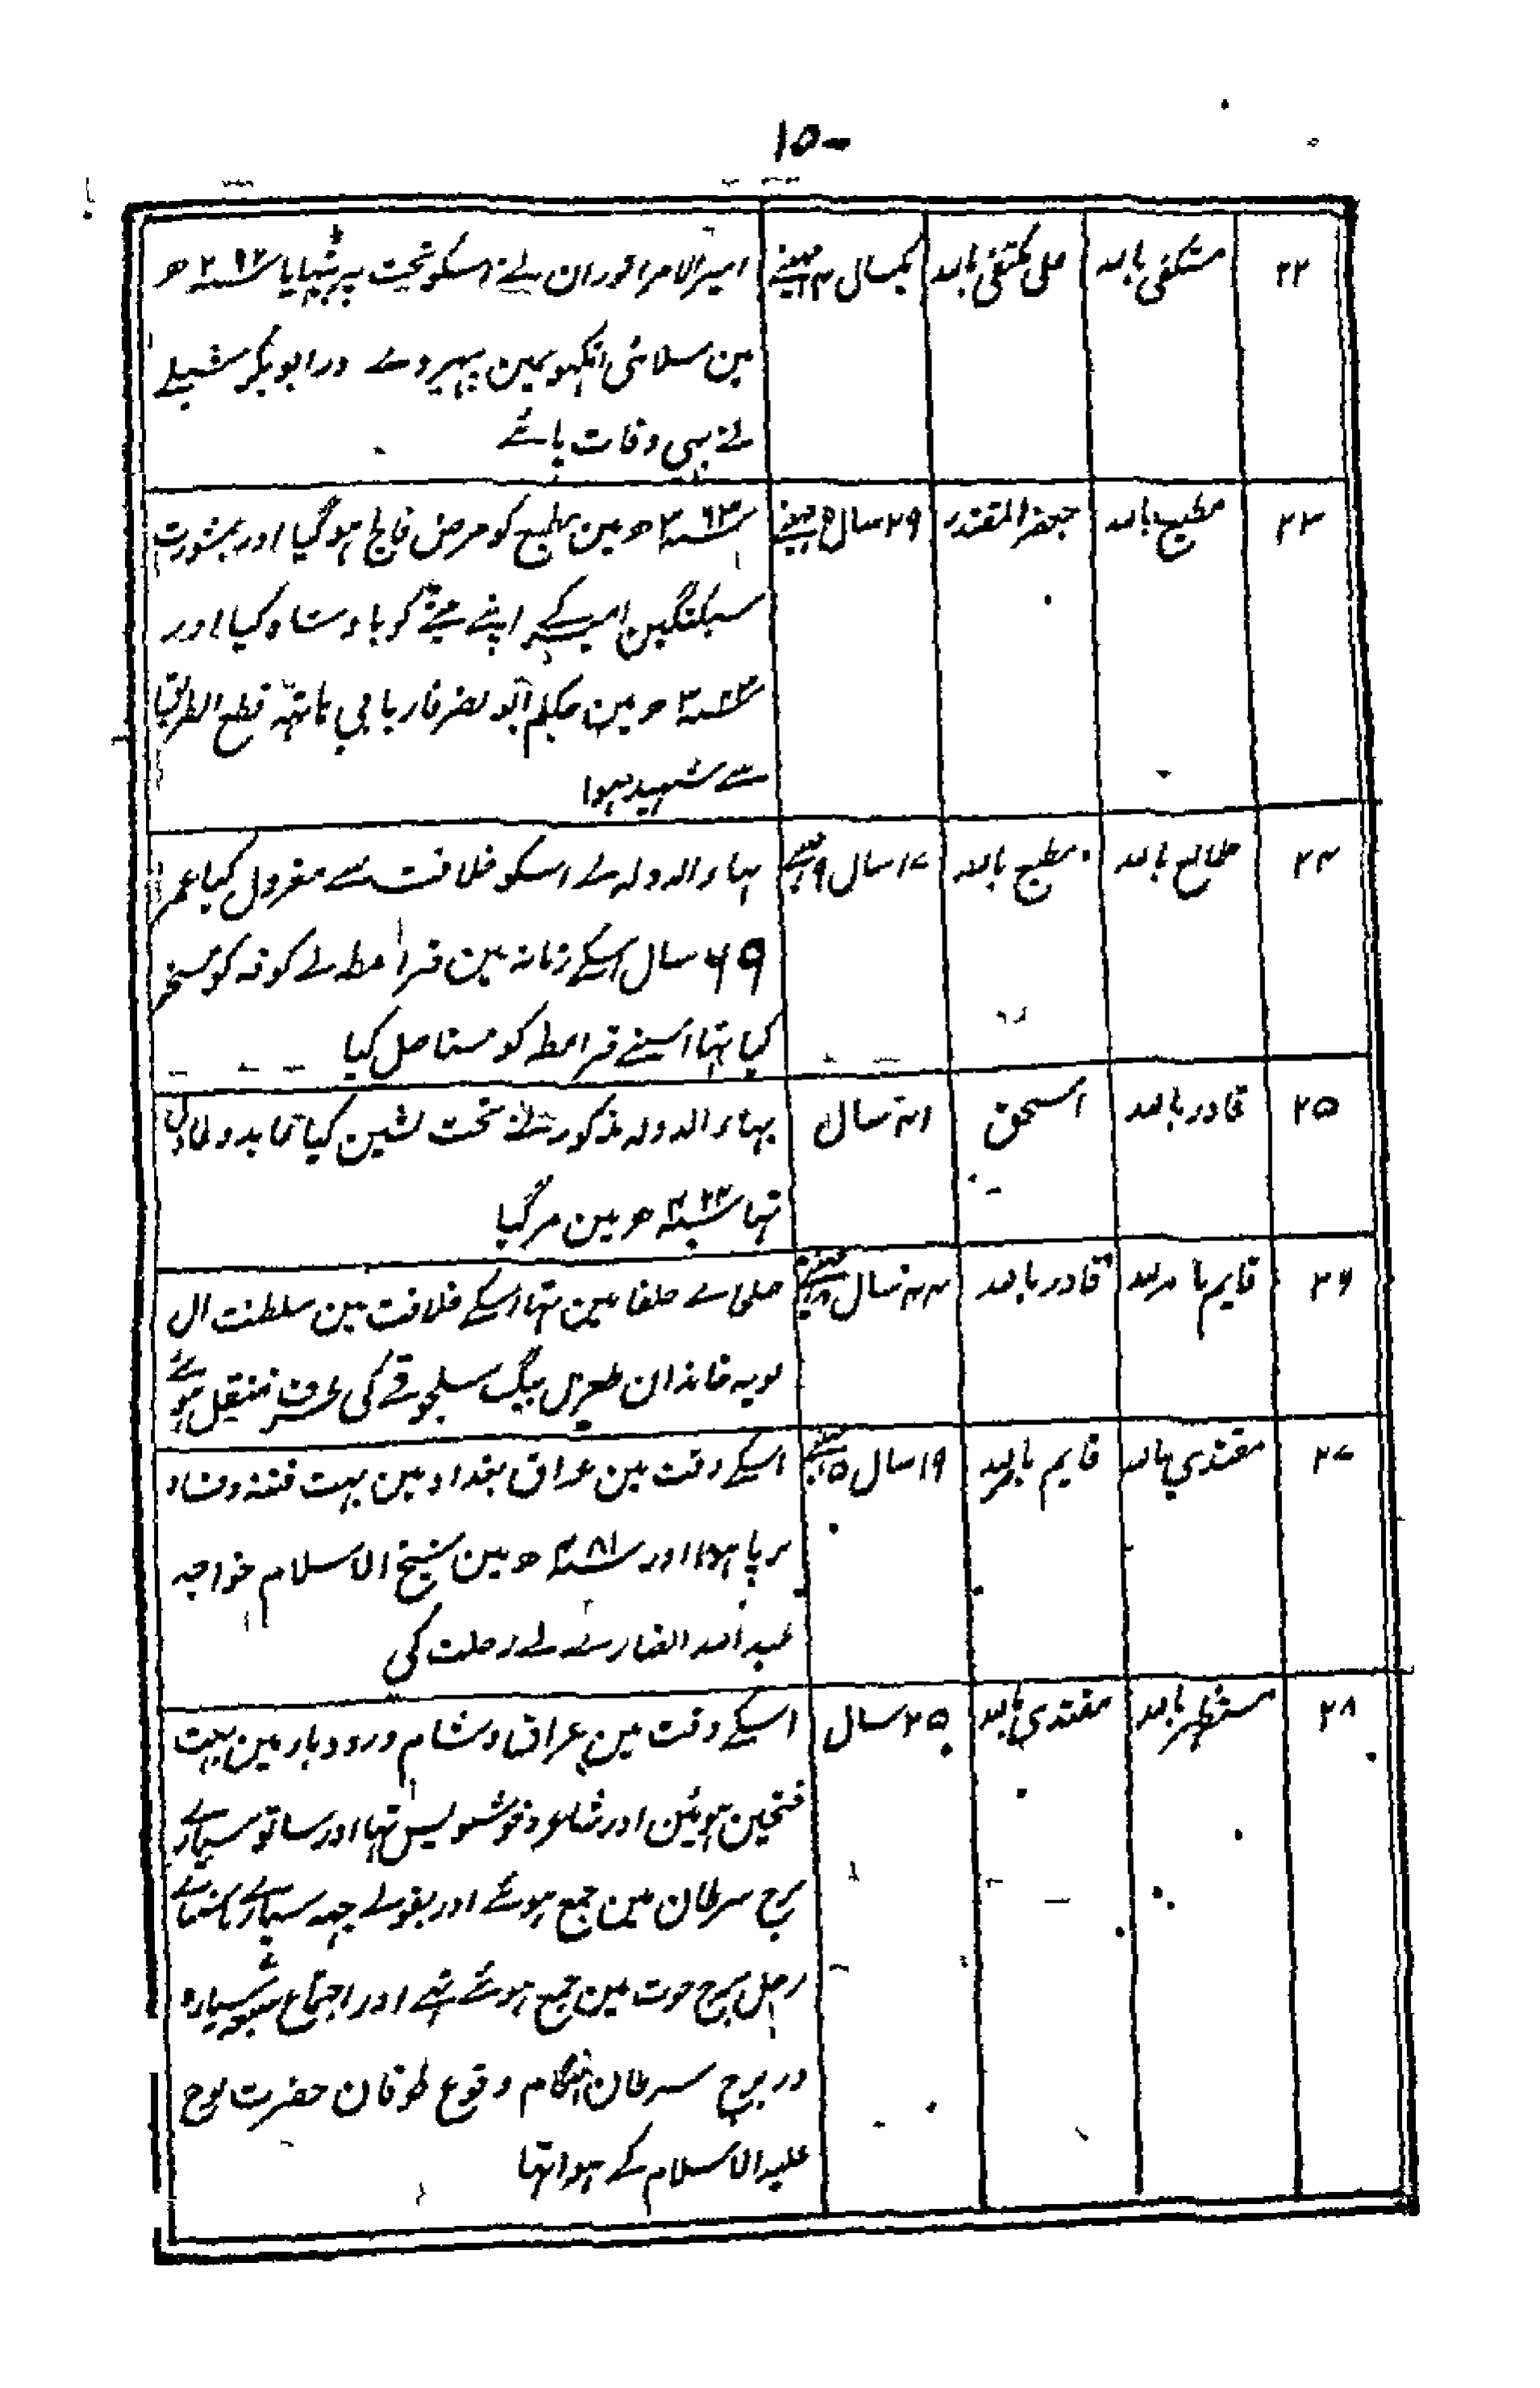 ۱۵۰
۲۲ مستکفی بالله علی مکتفی بالله یکسال ۴ مہینے امیر الامرا توران نے اسکو تخت پر بٹہایا
مین سلائی انکہو نمین پہیر دے در ابو بکر شبلے
نے بہی وفات پائے
۲۳ مطیع بالله جعفر المقتدر ۲۹ سال ۵ مہینے سنہ ۳۶۳ ھ مین مطیع کو مرض فالج ہو گیا اور بمشورت
سبکتگین امیر کے اپنے بیٹے کو بادشاہ کیا اور
سنہ ۳۴۳ ھ مین حکیم ابو نصر فاریابی ہاتہہ قطع الطریق
سے شہید ہوا
۲۴ طایع بالله مطیع بالله ۱۷ سال ۹ مہینے بہاء الدولہ نے اسکو خلافت سے معزول کیا عمر
۶۹ سال اسکے زمانہ مین قرامطہ نے کوفہ کو مسخر
کیا تہا اسنے قرامطہ کو مستاصل کیا
۲۵ قادر بالله اسحق ۴۱ سال بہاء الدولہ مذکور نے تخت نشین کیا عابد و عادل
تہا سنہ ۴۲۲ ھ مین مر گیا
۲۶ قایم بامرالله قادر بالله ۴۴ سال ۸ مہینے صلحاے خلفا مین تہا اسکے خلافت مین سلطنت ال
بویہ خاندان طغرل بیگ سلجوقے کی طرف منتقل ہوئے
۲۷ مقتدی بالله قایم بامرالله ۱۹ سال ۵ مہینے اسکے وقت مین عراق بغداد مین بہت فتنہ و فساد
برپا ہوا اور سنہ ۴۸۱ ھ مین شیخ الاسلام خواجہ
عبد الله انصارے نے رحلت کی
۲۸ مستظہر بالله مقتدی بالله ۲۵ سال اسکے وقت مین عراق و شام و رودبار مین بہت
فتحین ہوئین اور شاعر و خوشنویس تہا اور ساتو سیارے
برج سرطان مین جمع ہوئے اور بقولے چہہ سیارے باستثناے
زحل برج حوت مین جمع ہوئے تہے اور اجتماع سبعہ سیارہ
در برج سرطان ہنگام وقوع طوفان حضرت نوح
علیہ الاسلام کے ہوا تہا